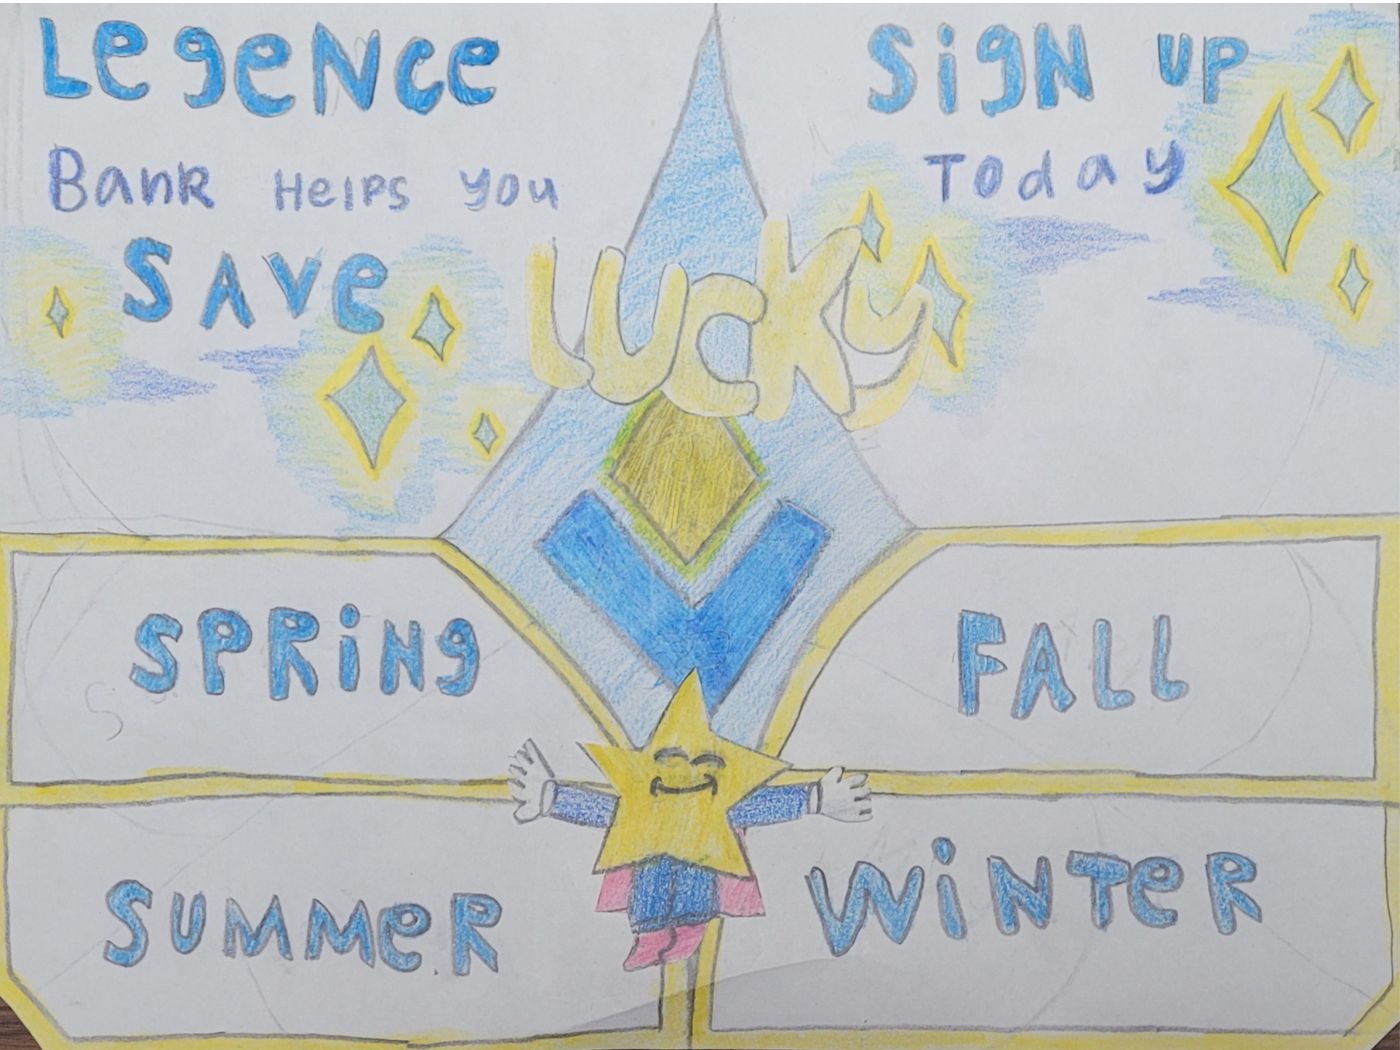 Legence
Bank Helps you
Save
Sign up
Today
lucky
SPRiNg
FALL
SUMMeR
WiNTeR